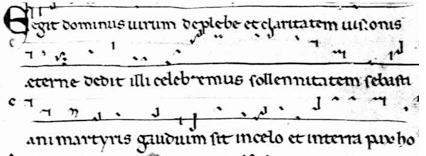 Egit dominus uirum de plebe et claritatem uisionis
æterne dedit illi celebremus sollennitatem sebasti
ani martyris gaudium sit in celo et in terra pax ho